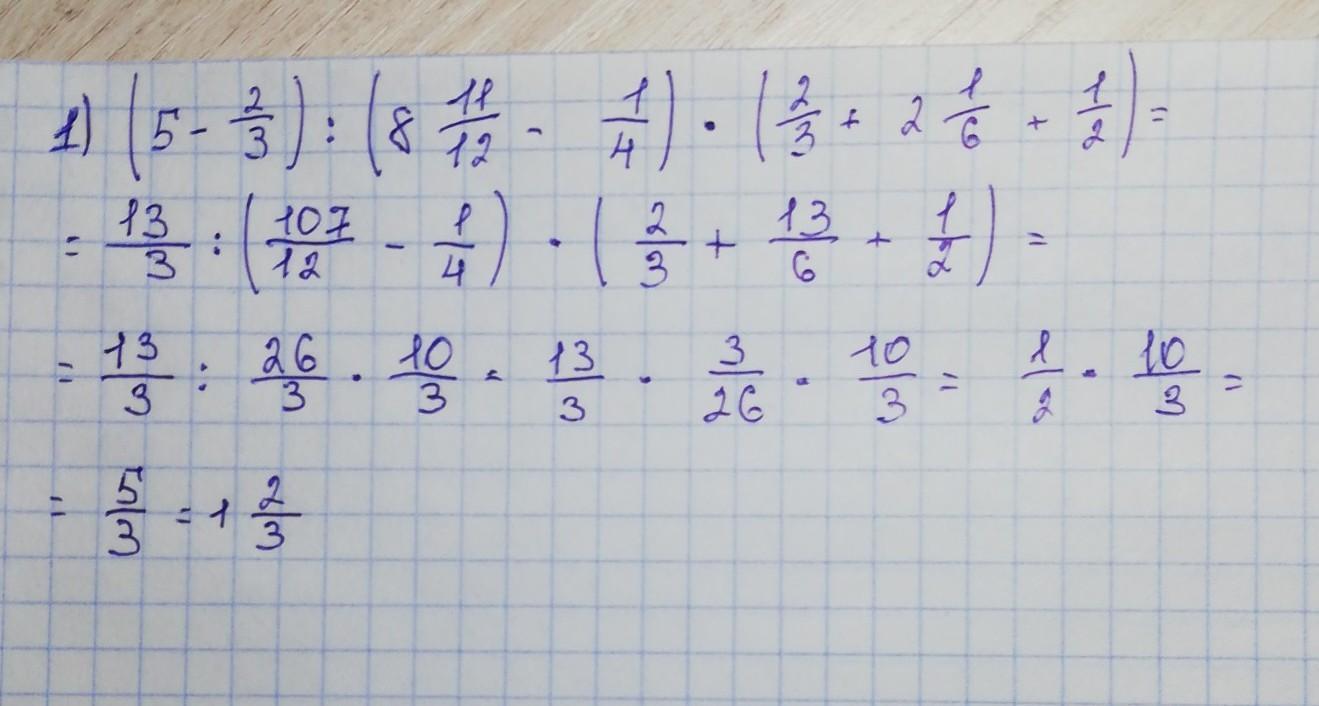 1) (5 - 2/3) : (8 11/12 - 1/4) · (2/3 + 2 1/6 + 1/2) =
= 13/3 : (107/12 - 1/4) · (2/3 + 13/6 + 1/2) =
= 13/3 : 26/3 · 10/3 = 13/3 · 3/26 · 10/3 = 1/2 · 10/3 =
= 5/3 = 1 2/3